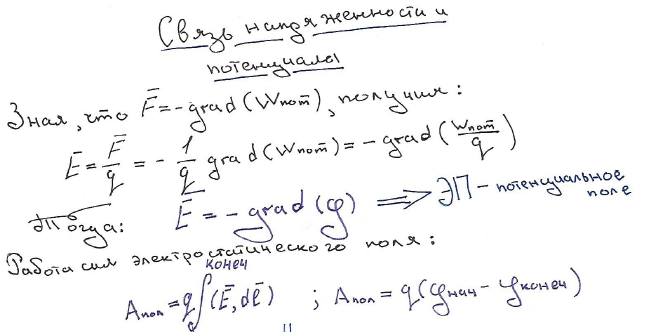 Связь напряженности и
потенциала
Зная, что F̄ = -grad(Wпот), получим:
Ē = F̄/q = - 1/q grad(Wпот) = - grad(Wпот/q)
Тогда: Ē = -grad(φ) ⟹ ЭП - потенциальное
поле
Работа сил электростатического поля:
Aпол = q∫^конеч (Ē, dl̄) ; Aпол = q(φнач - φконеч)